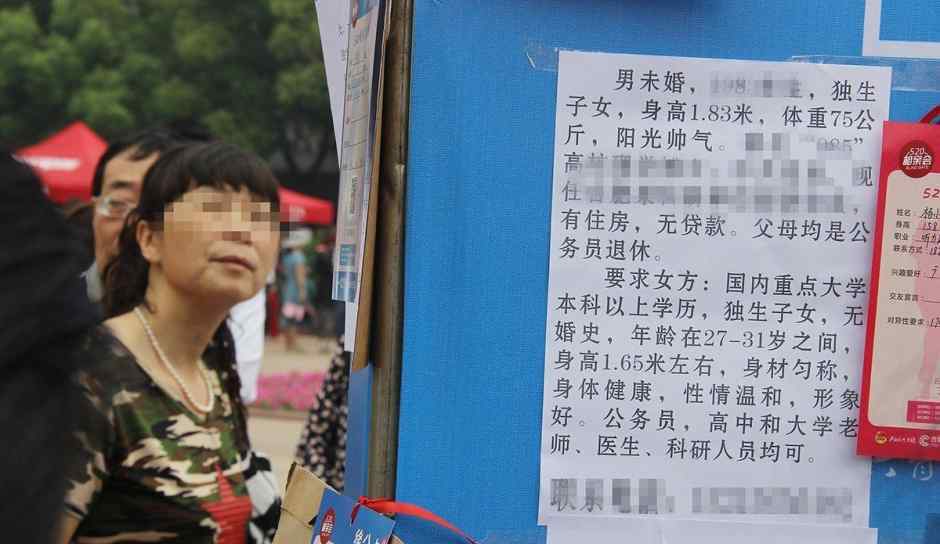 男未婚，198
，独生
子女，身高1.83米，体重75公
斤，阳光帅气。
"985"
现
有住房，无贷款。父母均是公
务员退休。
要求女方：国内重点大学
本科以上学历，独生子女，无
婚史，年龄在27-31岁之间，
身高1.65米左右，身材匀称，
身体健康，性情温和，形象
好。公务员，高中和大学老
师、医生、科研人员均可。
520
相亲会
52
姓名：
身高：158
职业：
联系方式：
兴趣爱好：
交友宣言：
对异性要求：